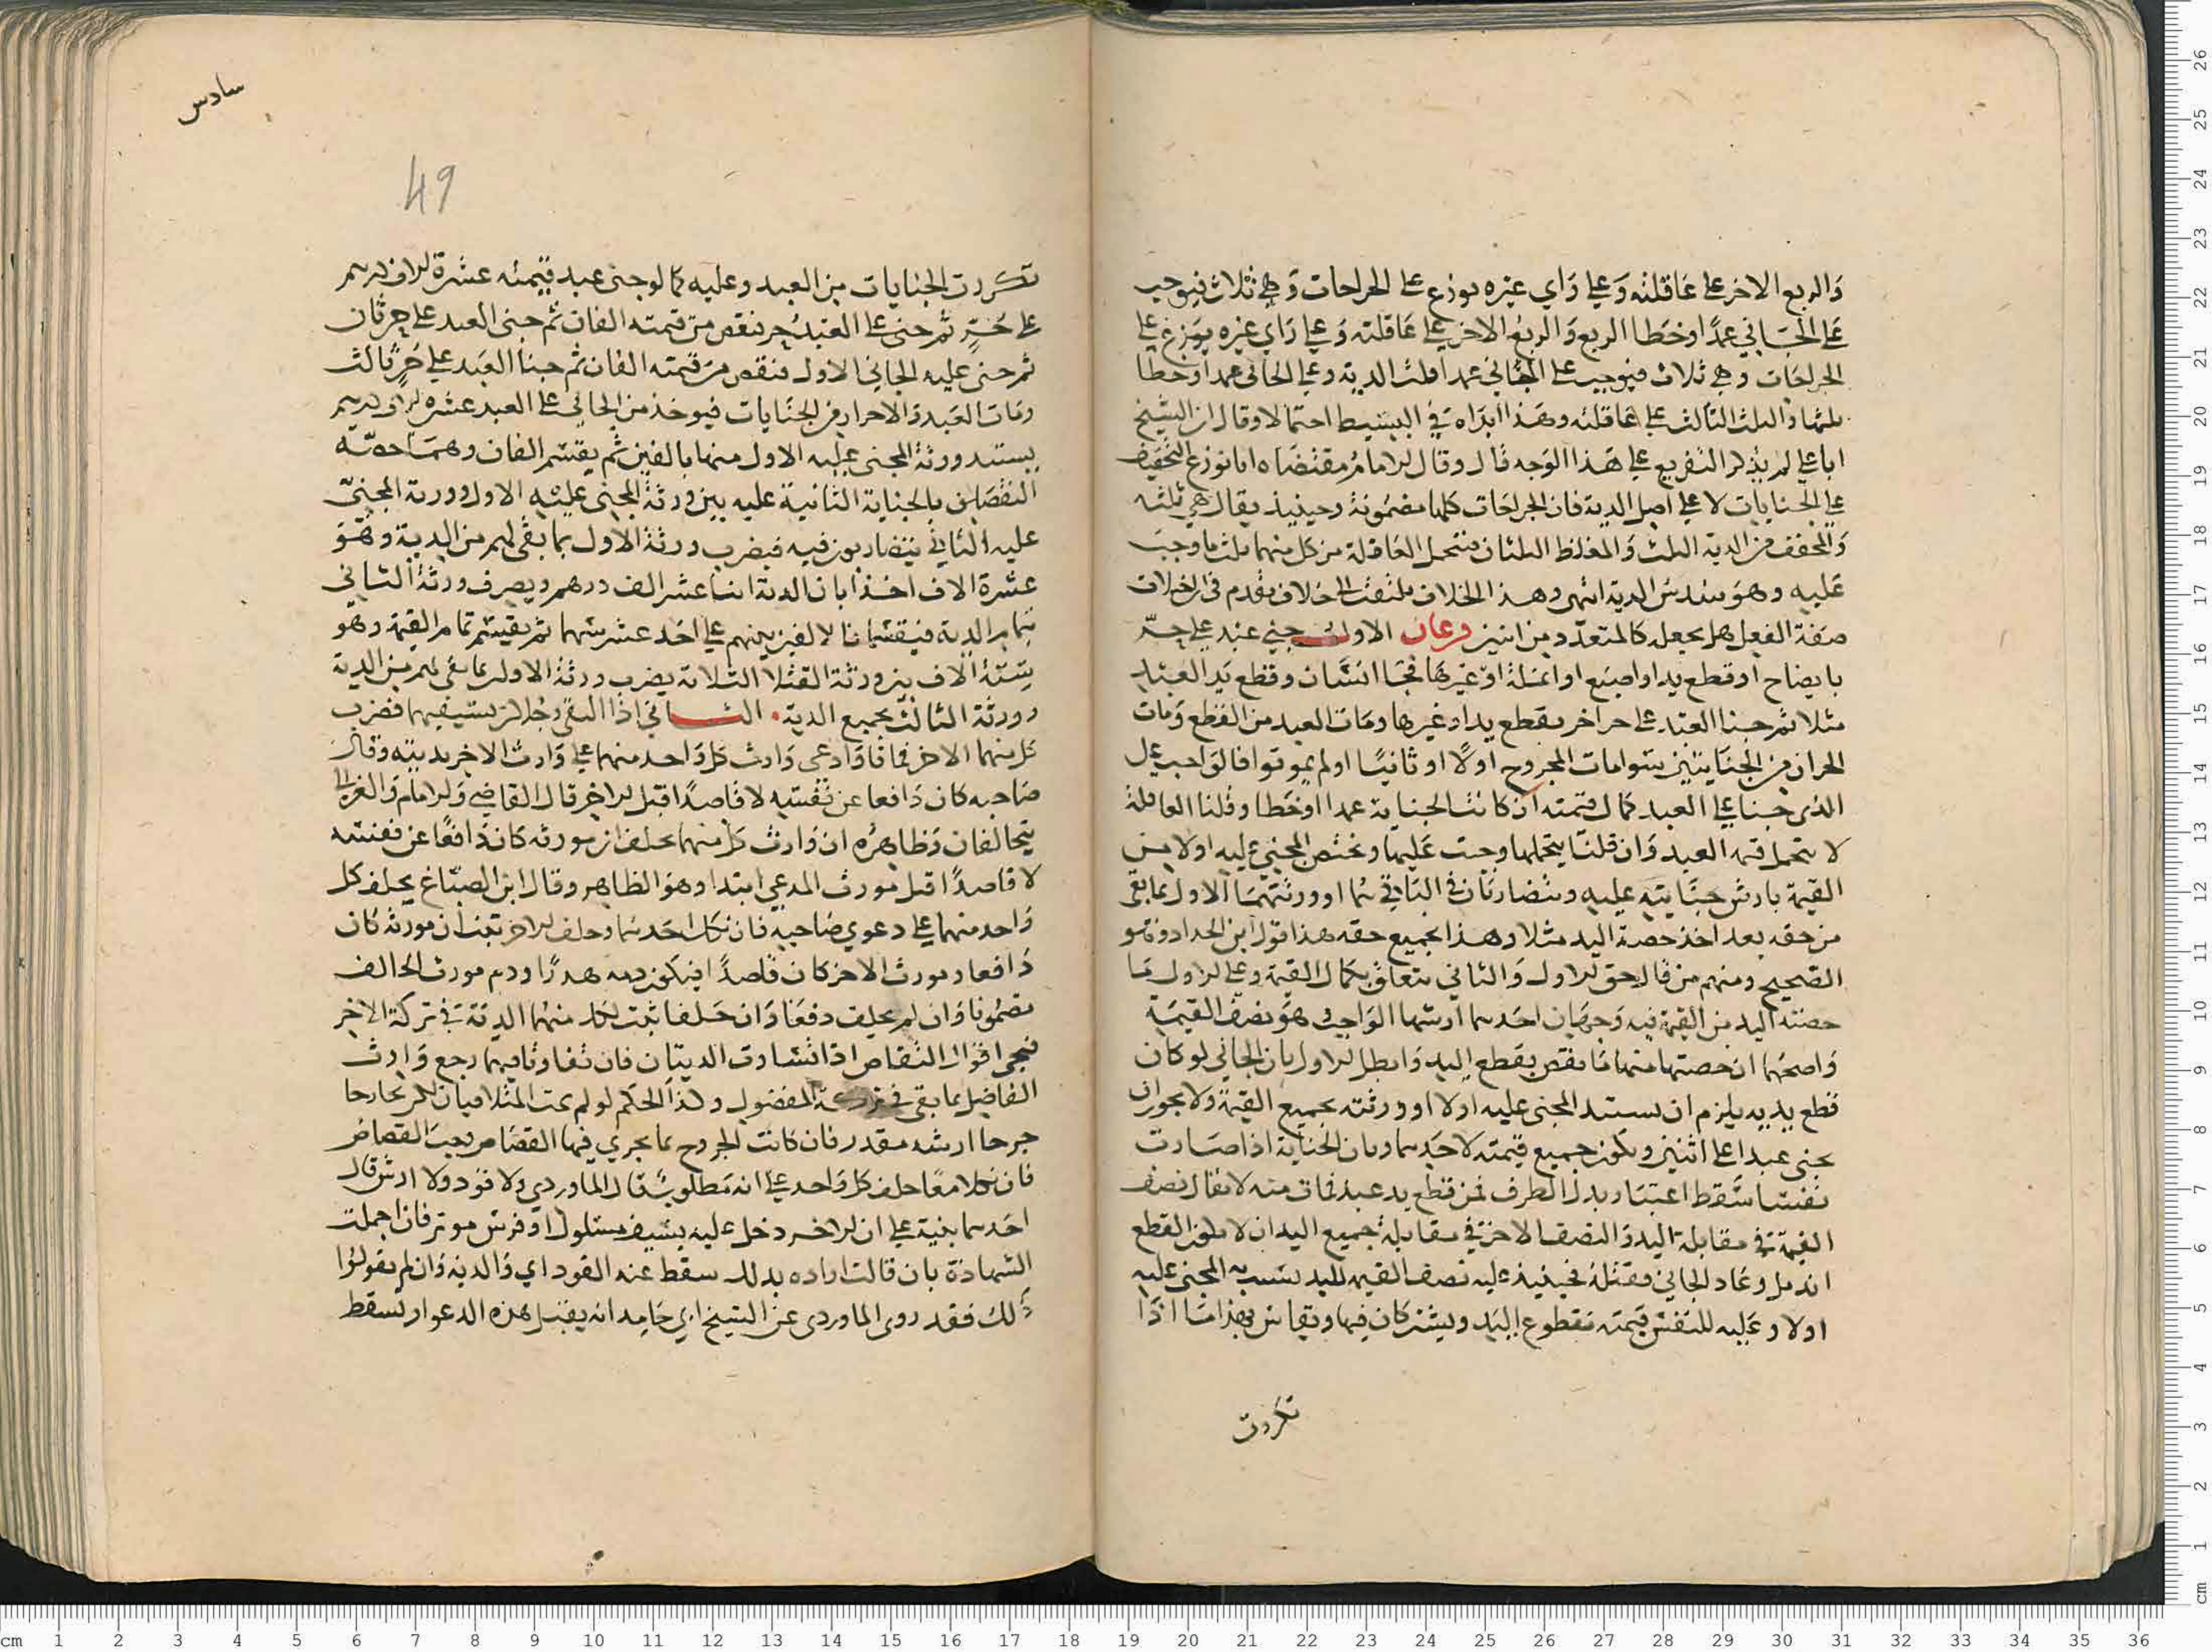 والربع الاخر على عاقلته وعلى راي غيره يوزع على الجراحات وهي ثلاث فيوجب
على الجاني عمدا وخطا الربع والربع الاخر على عاقلته وعلى راي غيره يوزع على
الجراحات وهي ثلاث فيوجب على الجاني عمدا ثلث الدية وعلى الجاني عمدا وخطا
ثلثها والثلث الثالث على عاقلته وهذا ابداه في البسيط احتمالا وقال ان الشيخ
ابا علي لم يذكر التفريع على هذا الوجه قال وقال الامام مقتضاه انا نوزع التخفيف
على الجنايات لا على اصل الدية فان الجراحات كلها مضمونة وحينيذ يقال هي ثلثه
والمخفف من الدية الثلث والمغلظ الثلثان فتتحمل العاقلة من كل منهما ثلث ما وجب
عليه وهو سدس الدية انتهى وهذا الخلاف يلتفت الى خلاف تقدم في ان اختلاف
صفة الفعل هل يجعله كالمتعدد من اثنين فرعان الاول جنى عبد على حر
بايضاح او قطع يد او اصبع او انملة او غيرها فجا انسان وقطع يد العبد
مثلا ثم جنا العبد على حر اخر بقطع يد او غيرها ومات العبد من القطع ومات
الحران من الجنايتين سوا مات المجروح اولا او ثانيا او لم يموتوا فالواجب على
الذي جنا على العبد كمال قيمته ان كانت الجناية عمدا او خطا وقلنا العاقلة
لا تتحمل قيمة العبد وان قلنا يتحملها وجبت عليها ويختص المجني عليه اولا من
القيمة بارش جنايته عليه ويتضاربان في الباقي هما او ورثتهما الاول بما بقي
من حقه بعد اخذ حصة اليد مثلا وهذا بجميع حقه هذا قول ابن الحداد وهو
الصحيح ومنهم من قال حق الاول والثاني يتعلق بكمال القيمة وعلى الاول ما
حصته اليد من القيمة فيه وجهان احدهما ارشها الواجب وهو نصف القيمة
واصحهما ان حصتها منها ما نقص بقطع اليد وابطل الاول بان الجاني لو كان
قطع يديه يلزم ان يستبد المجني عليه اولا او ورثته بجميع القيمة ولا يجوز ان
يجني عبدا على اثنين ويكون جميع قيمته لاحدهما وبان الجناية اذا صارت
نفسا سقط اعتبار بدل الطرف فمن قطع يد عبد فمات منه لا يقال نصف
القيمة في مقابلة اليد والنصف الاخر في مقابلة جميع اليدان لا يكون القطع
اندمل وعاد الجاني فقتله فحينيذ عليه نصف القيمة لليد يستبد به المجني عليه
اولا وعليه للنفس قيمته مقطوع اليد ويشتركان فيها ويقاس بهذا ما اذا
تكررت
سادس
49
تكررت الجنايات من العبد وعليه كما لو جنى عبد قيمته عشرة الاف درهم
على حر ثم جنى على العبد حر فنقص من قيمته الفان ثم جنى العبد على حر ثان
ثم جنى عليه الجاني الاول فنقص من قيمته الفان ثم جنا العبد على حر ثالث
ومات العبد والاحرار من الجنايات فيوخذ من الجاني على العبد عشرة الاف درهم
يستبد ورثة المجني عليه الاول منها بالفين ثم يقسم الفان وهما حصة
النقصان بالجناية الثانية عليه بين ورثة المجني عليه الاول وورثة المجني
عليه الثاني يتضاربون فيه فيضرب ورثة الاول بما بقي لهم من الدية وهو
عشرة الاف اخذا بان الدية اثنا عشر الف درهم ويضرب ورثة الثاني
بتمام الدية فيقسمان الالفين بينهم على احد عشر سهما ثم يقسم تمام القيمة وهو
ستة الاف بين ورثة القتلا الثلاثة يضرب ورثة الاول بما بقي لهم من الدية
وورثة الثالث بجميع الدية الثاني اذا التقى رجلان بسيفيهما فضرب
كل منهما الاخر فماتا وادعى وارث كل واحد منهما على وارث الاخر بديته وقال
صاحبه كان دافعا عن نفسه لا قاصدا قبل الاخر قال القاضي والامام والغزالي
يتحالفان وظاهره ان وارث كل منهما يحلف ان مورثه كان دافعا عن نفسه
لا قاصدا قبل مورث المدعي ابتدا وهو الظاهر وقال ابن الصباغ يحلف كل
واحد منهما على دعوى صاحبه فان نكل احدهما وحلف الاخر تعين ان مورثه كان
دافعا ومورث الاخر كان قاصدا فيكون دمه هدرا ودم مورث الحالف
مضمونا وان لم يحلف دفعا وان حلفا ثبت لكل منهما الدية في تركة الاخر
فيجي اقوال التقاص اذا تساوت الديتان فان تفاوتا فيهما رجع وارث
الفاضل بما بقي في تركة المفضول وكذا الحكم لو لم يمت المثلا فبان لكن تجارحا
جرحا ارشه مقدر فان كانت الجروح مما يجري فيها القصاص وجب القصاص
فان نكلا معا حلف كل واحد على انه مطلوب قال الماوردي ولا قود ولا ارش قال
احدهما بنية على ان الاخر دخل عليه بسيف مسلول او فرس موتر فان اجملت
الشهادة بان قالت اراده بذلك سقط عنه القود اي والدية وان لم يقولوا
ذلك فقد روى الماوردي عن الشيخ ابي حامد انه يقبل هذه الدعوى ويسقط